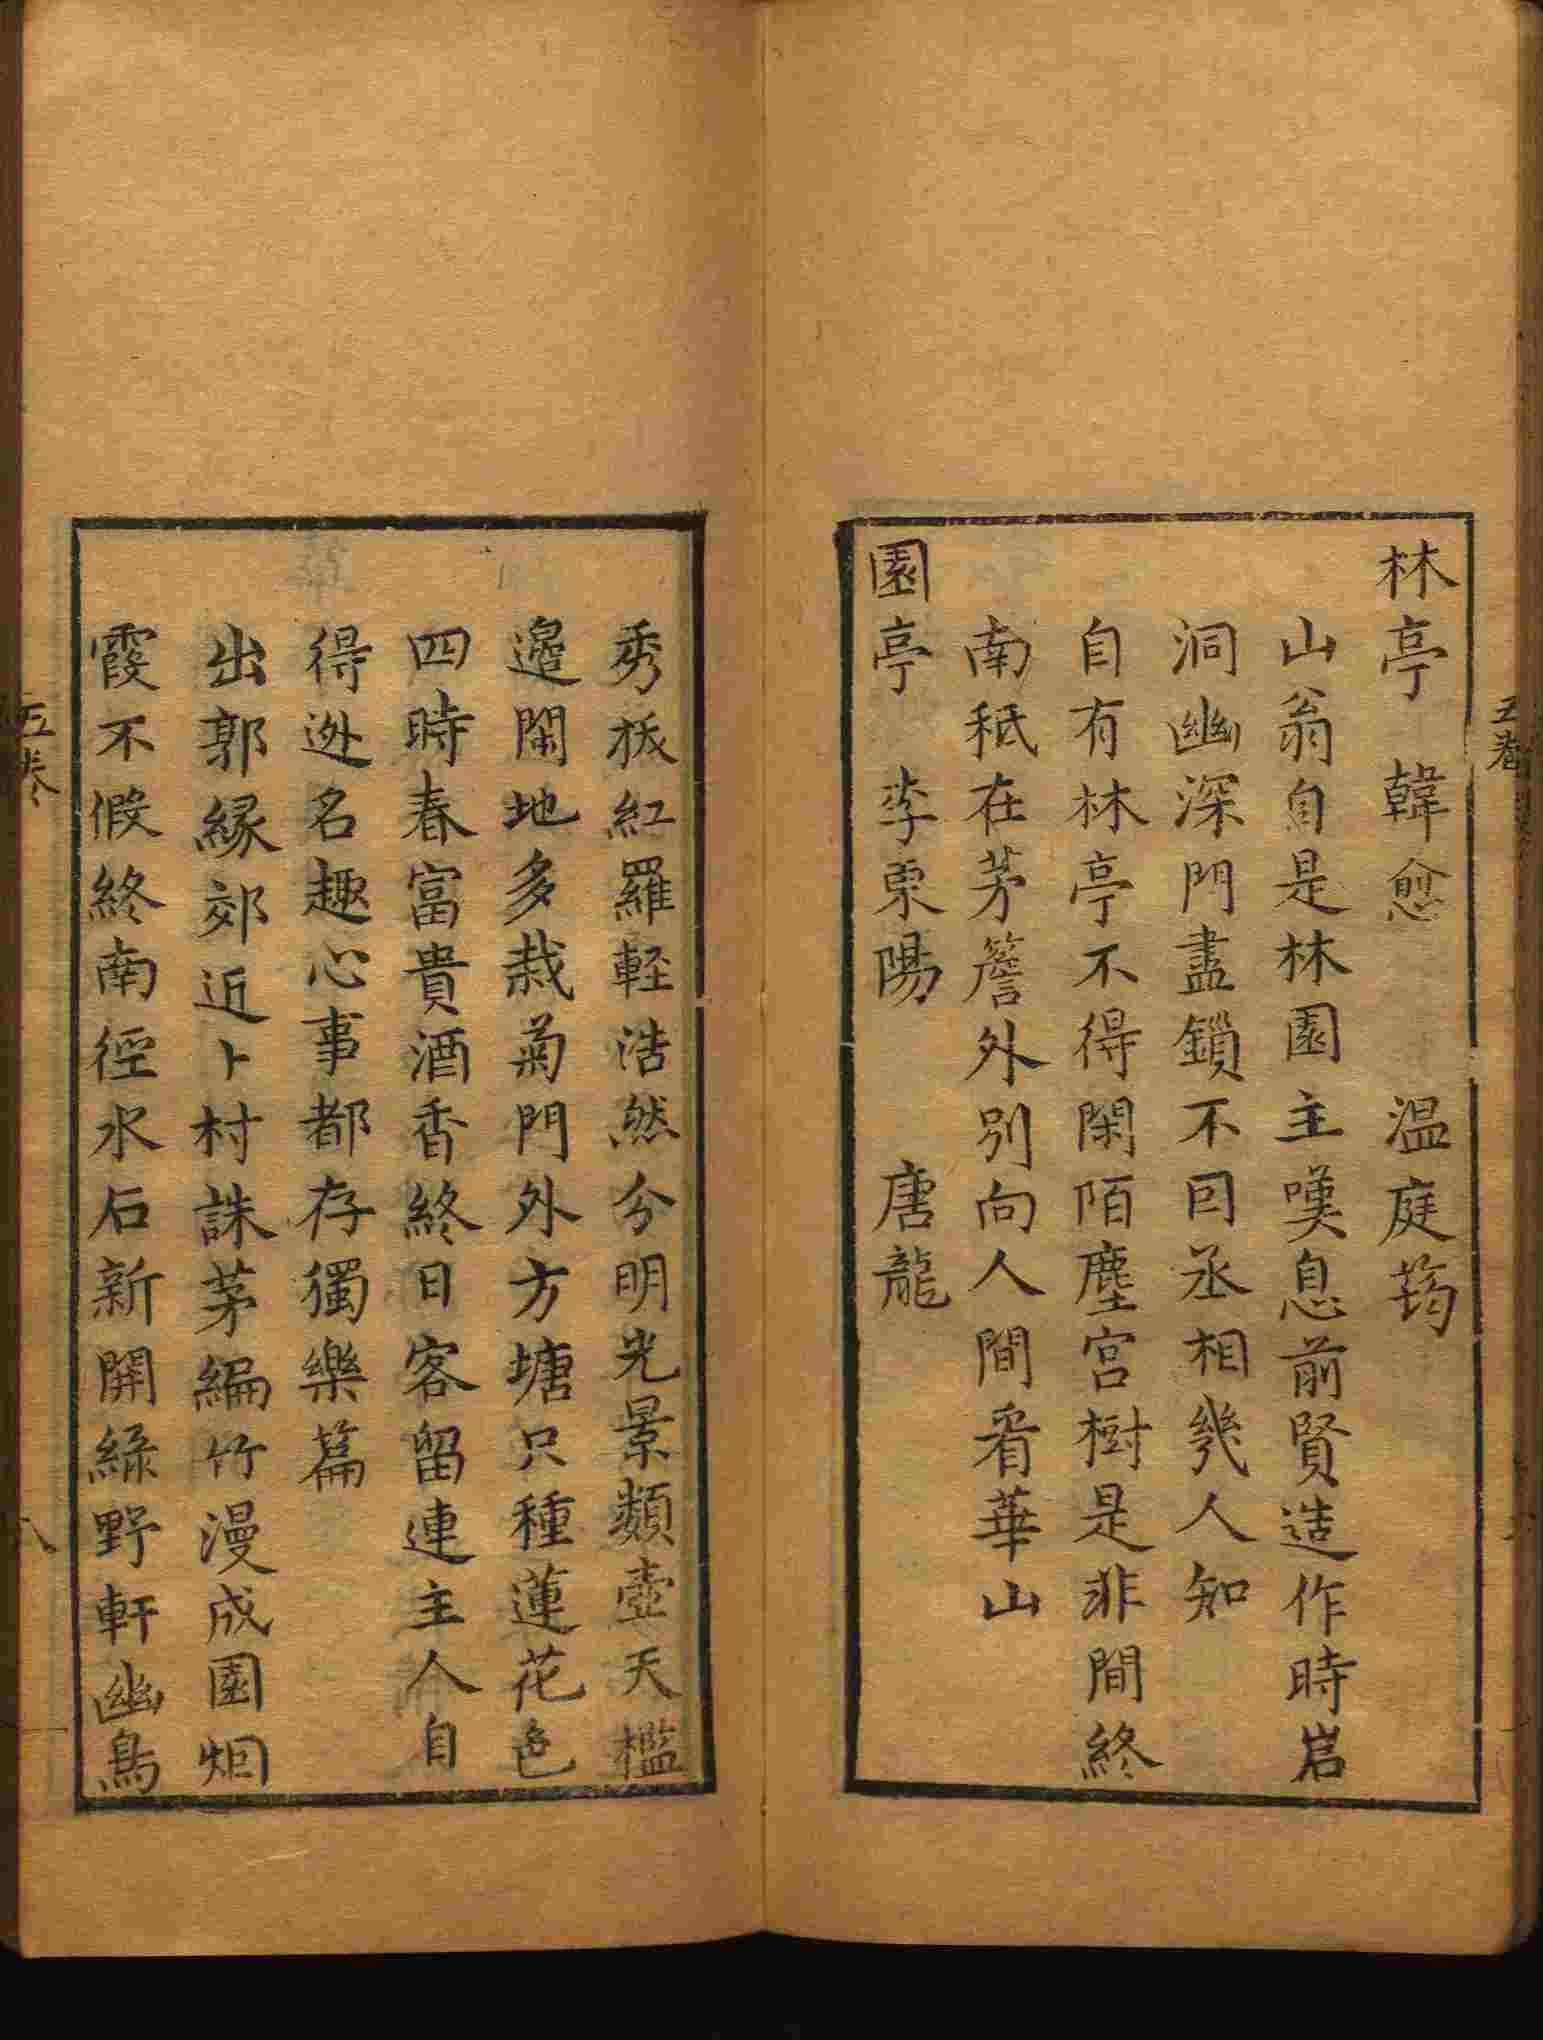 林亭 韓愈 温庭筠
山翁自是林園主嘆息前賢造作時岩
洞幽深門盡鎖不囙丞相幾人知
自有林亭不得閑陌塵宮樹是非間終
南秪在茅簷外別向人間看華山
園亭 李東陽 唐龍
秀拔紅羅軽浩然分明光景類壺天檻
邉閑地多栽菊門外方塘只種蓮花色
四時春富貴酒香終日客留連主人自
得迯名趣心事都存獨樂篇
出郭縁郊近卜村誅茅編竹漫成園烟
霞不假終南徑水石新開緑野軒幽鳥
五卷
五卷
八